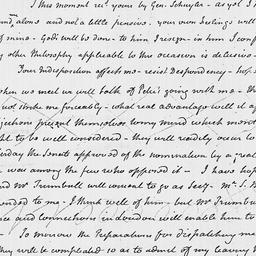 this moment recd. yours by Gen. Schuyler - as yet I
and, alone and not a little pensive. your own feelings will
of mine - God's will be done - to him I resign - in him I conf
other Philosophy applicable to this occasion is delusive -
Your Indisposition affects me - resist Despondency - hope
when we meet we will talk of Peter's going with me - th
not strike me forceably - what real advantage will it a
jections present themselves to my mind which most
to be well considered - they will readily occur to
day the Senate approved of the nomination by a great
was among the few who opposed it - I have
and Mr Trumbull will consent to go as Secy. - Mr. S.
ended to me - I think well of him - but Mr Trumbull
ce and connections in London will enable him to
To morrow the Preparations for dispatching me
they will be compleated so as to admit of my leaving